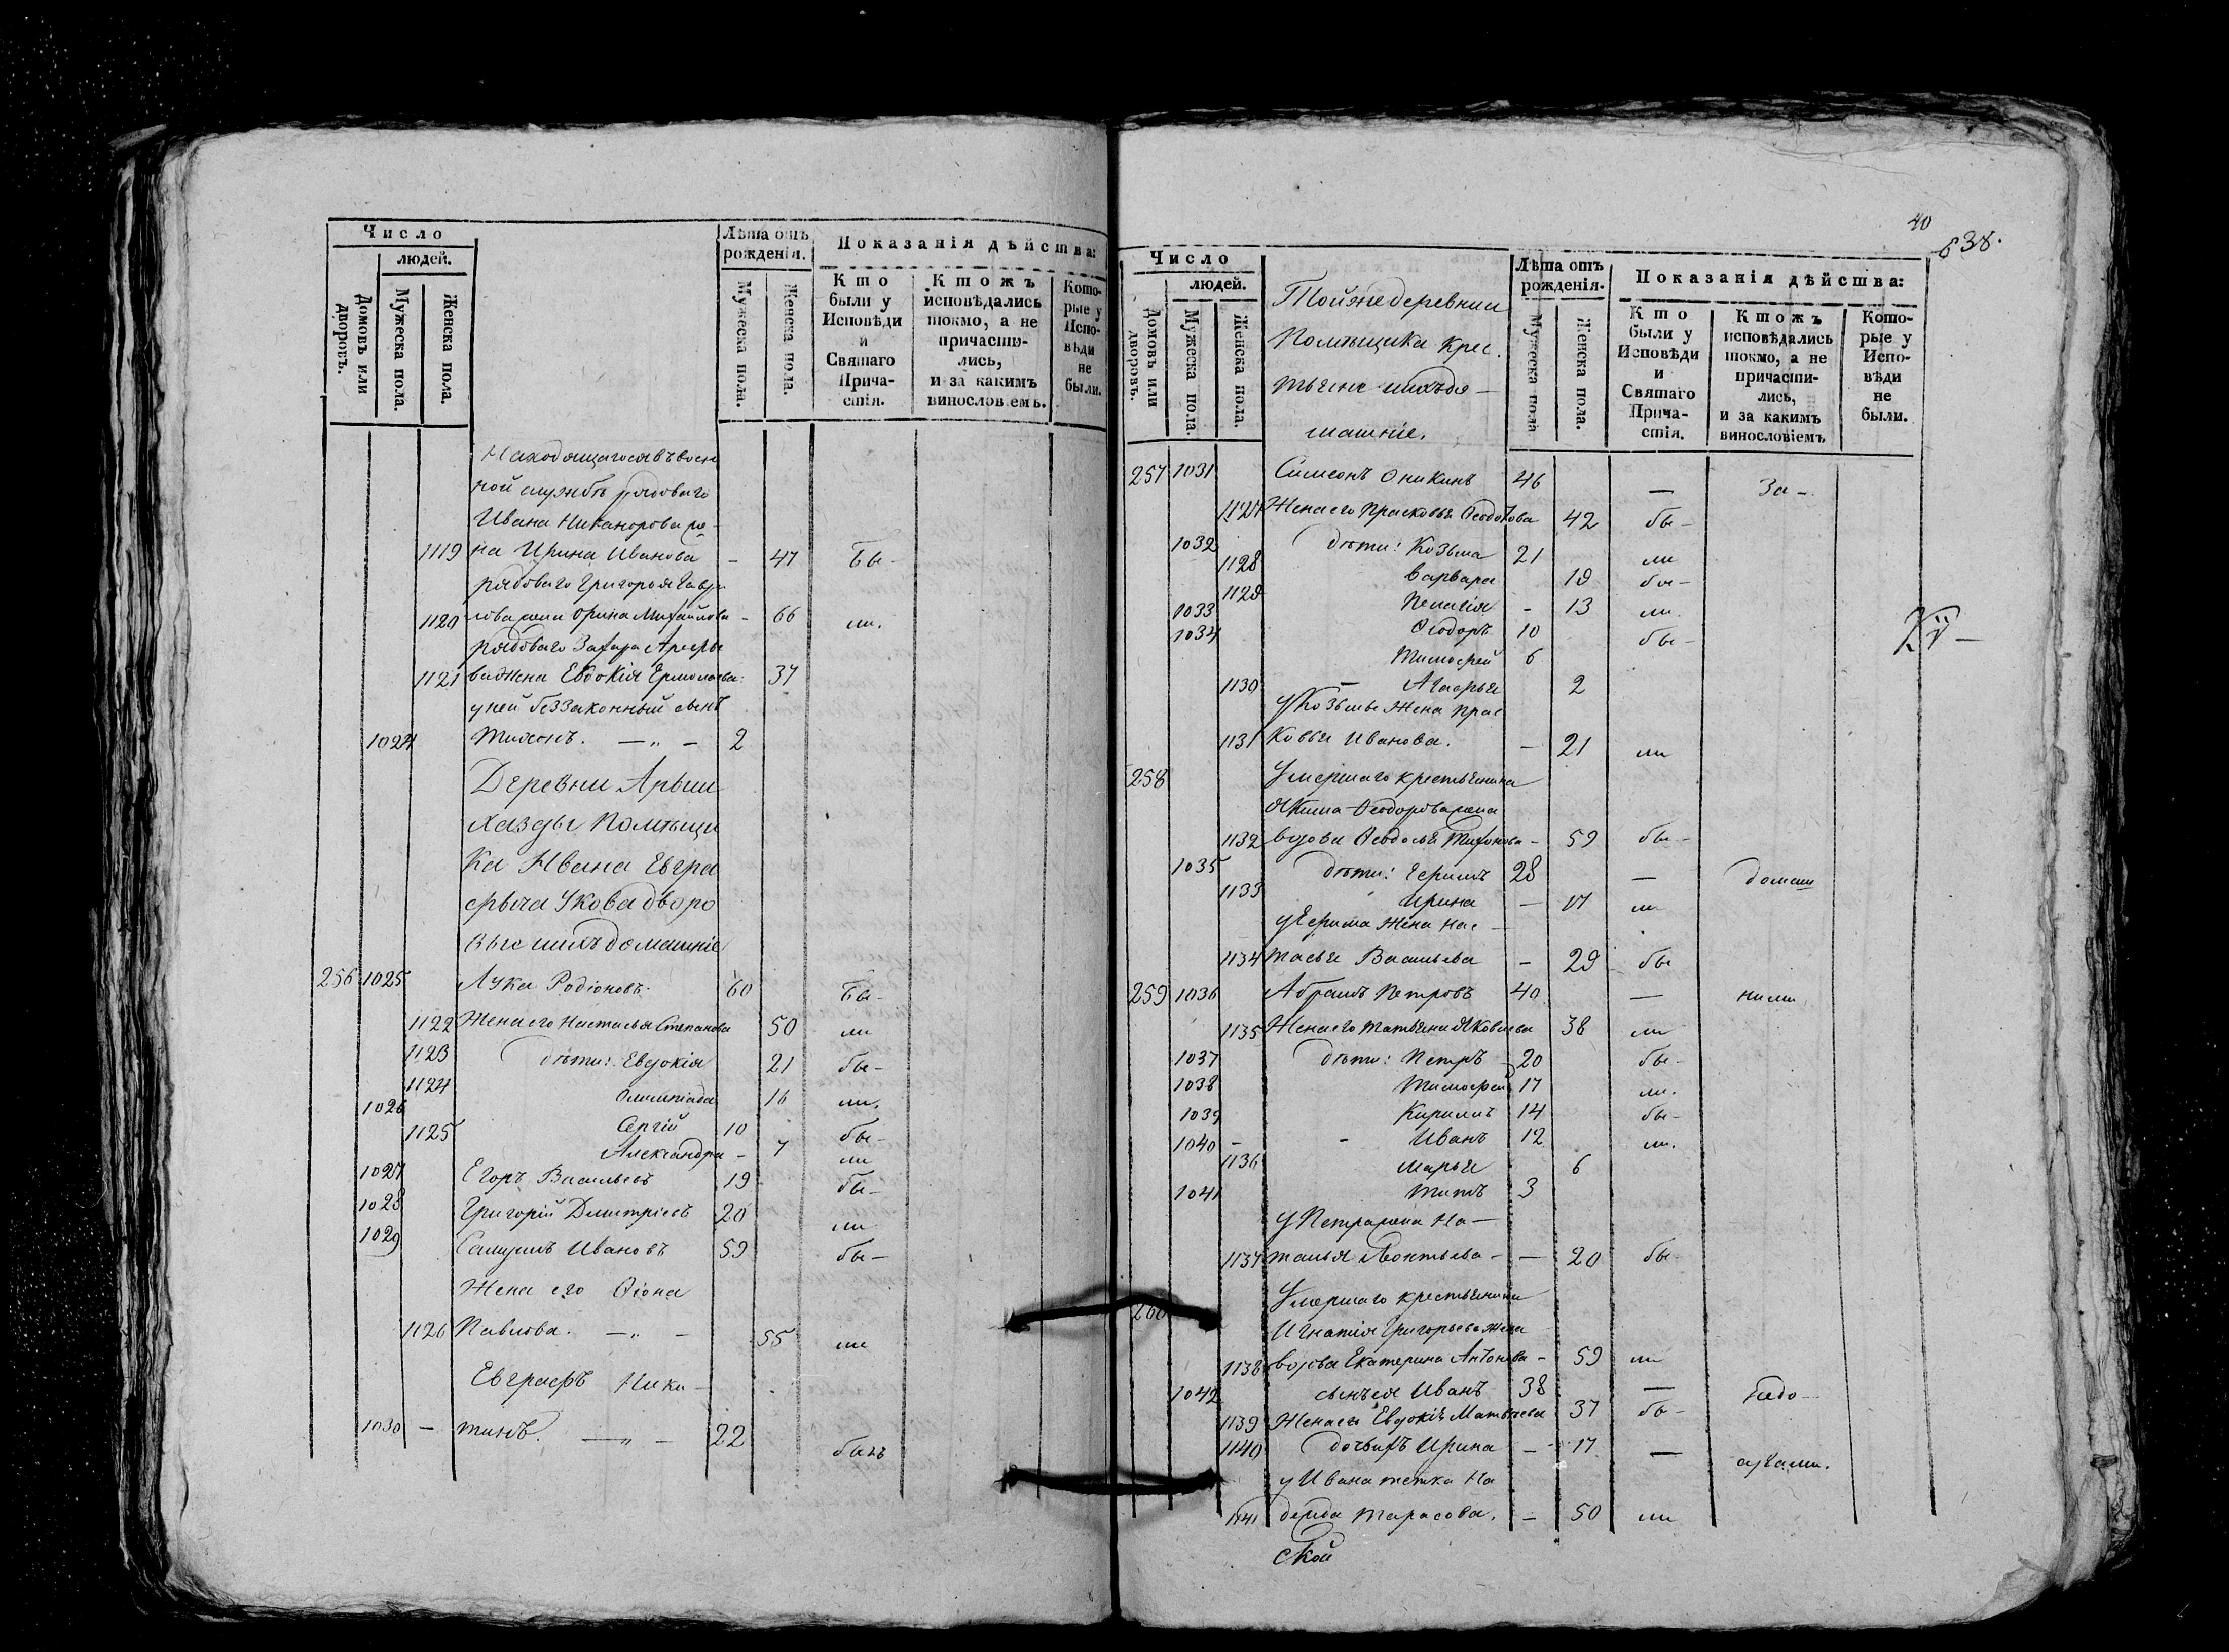 Число
людей.
Домовъ или дворовъ.
Мужеска пола.
Женска пола.
Лѣта отъ рожденія.
Мужеска пола.
Женска пола.
Показанія дѣйства:
Кто были у Исповѣди и Святаго Причастія.
Ктожъ исповѣдались токмо, а не причастились, и за какимъ винословіемъ.
Которые у Исповѣди не были.
Находящагося въ воен
ной службѣ рядоваго
Ивана Никанорова же
1119 на Ирина Иванова - 47 Бы-
рядоваго Григорья Гаври
1120 лова жена Орина Михайлова - 66 ли.
рядоваго Захара Арефье
1121 ва жена Евдокія Ермолаева: 37
у ней беззаконный сынъ
1024 Тихонъ. —„— 2
Деревни
Помѣщи
ка Ивана Евгра
фыча дворо
вые ихъ домашніе
256 1025 Лука Родіоновъ. 60 Бы-
1122 Жена его Настасья Степанова 50 ли
1123 дѣти: Евдокія 21 бы-
1124 Олимпіада 16 ли.
1026 Сергій 10 бы-
1125 Александра - 7 ли
1027 Егоръ Васильевъ 19 бы-
1028 Григорій Димитріевъ 20 ли
1029 Самуилъ Ивановъ 59 бы-
Жена его Ѳіона
1126 Павлова. —„— 55 ли
Евграфъ Ники-
1030 — тинъ. —„— 22 былъ
40
638.
Число
людей.
Домовъ или дворовъ.
Мужеска пола.
Женска пола.
Тойже деревни
Помѣщика крес
тьяне ихъ до-
машніе.
Лѣта отъ рожденія.
Мужеска пола
Женска пола.
Показанія дѣйства:
Кто были у Исповѣди и Святаго Причастія.
Ктожъ исповѣдались токмо, а не причастились, и за какимъ винословіемъ
Которые у Исповѣди не были.
257 1031 Симеонъ Оникинъ 46 — За-
1127 Жена его Прасковья 42 бы-
1032 дѣти: Козьма 21 ли
1128 Варвара 19 бы-
1129 Пелагія - 13 ли.
1033 Ѳеодоръ 10 бы-
1034 Тимофей 6
1130 — Агафья 2
у Козьмы жена Прас
1131 ковья Иванова. — 21 ли
258 Умершаго крестьянина
Якима Ѳеодорова жена
1132 вдова Ѳеодосья Тихонова - 59 бы-
1035 дѣти: Ефимъ 28 — домаш
1133 Ирина — 17 ли
у Ефима жена Нас —
1134 тасья Васильева - 29 бы
259 1036 Абрамъ Петровъ 40 — ними
1135 Жена его Татьяна Яковлева 38 ли
1037 дѣти: Петръ 20 бы-
1038 Тимофей 17 ли.
1039 Кирилъ 14 бы-
1040 - - Иванъ 12 ли.
1136 Марья 6
1041 Титъ 3
у Петра жена На —
1137 талья Леонтьева - — 20 бы-
260 Умершаго крестьянина
Игнатія Григорьева жена
1138 вдова Екатерина Антонова - 59 ли
1042 сынъ ея Иванъ 38 — недо-
1139 Жена его Евдокія Матвѣева 37 бы-
1140 дочь ихъ Ирина - 17 —
сугами.
у Ивана тетка На
1141 дежда Тарасова. - 50 ли
ской